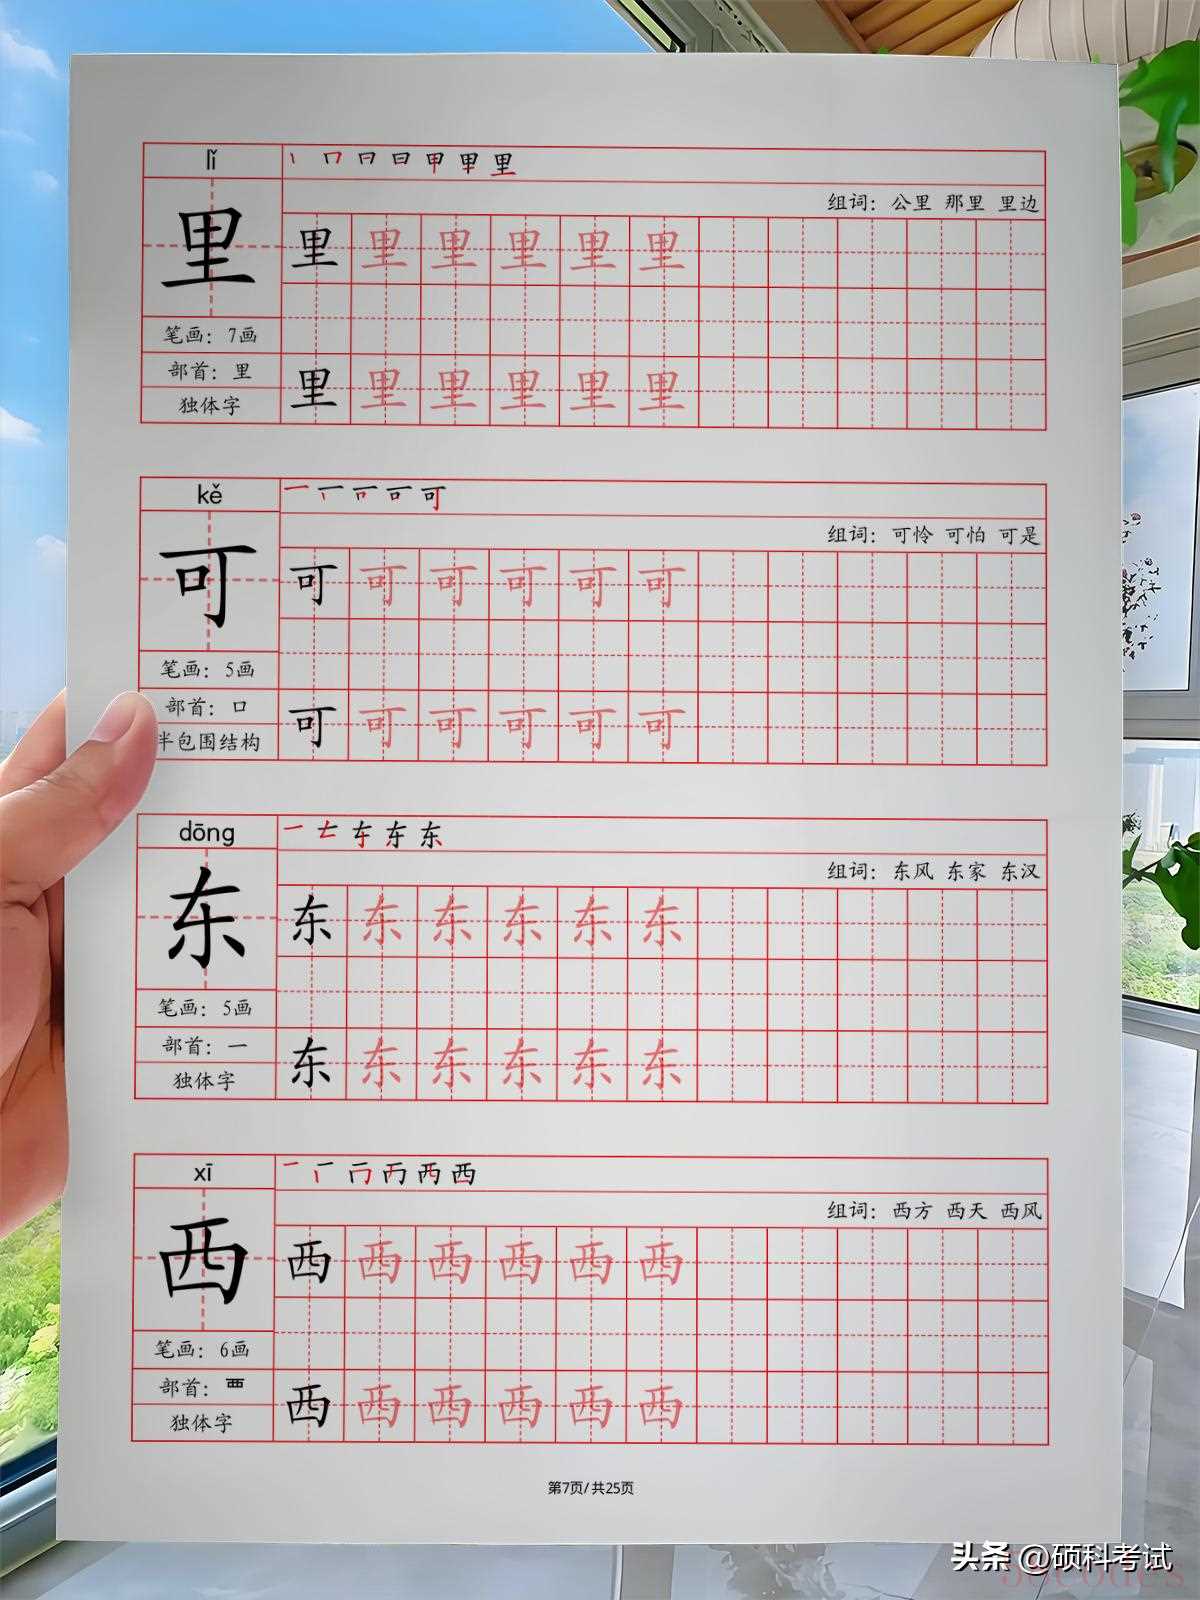 lǐ
里
笔画：7画
部首：里
独体字
组词：公里 那里 里边
里 里 里 里 里 里
里 里 里 里 里 里
kě
可
笔画：5画
部首：口
半包围结构
组词：可怜 可怕 可是
可 可 可 可 可 可
可 可 可 可 可 可
dōng
东
笔画：5画
部首：一
独体字
组词：东风 东家 东汉
东 东 东 东 东 东
东 东 东 东 东 东
xī
西
笔画：6画
部首：覀
独体字
组词：西方 西天 西风
西 西 西 西 西 西
西 西 西 西 西 西
第7页/共25页
头条 @硕科考试